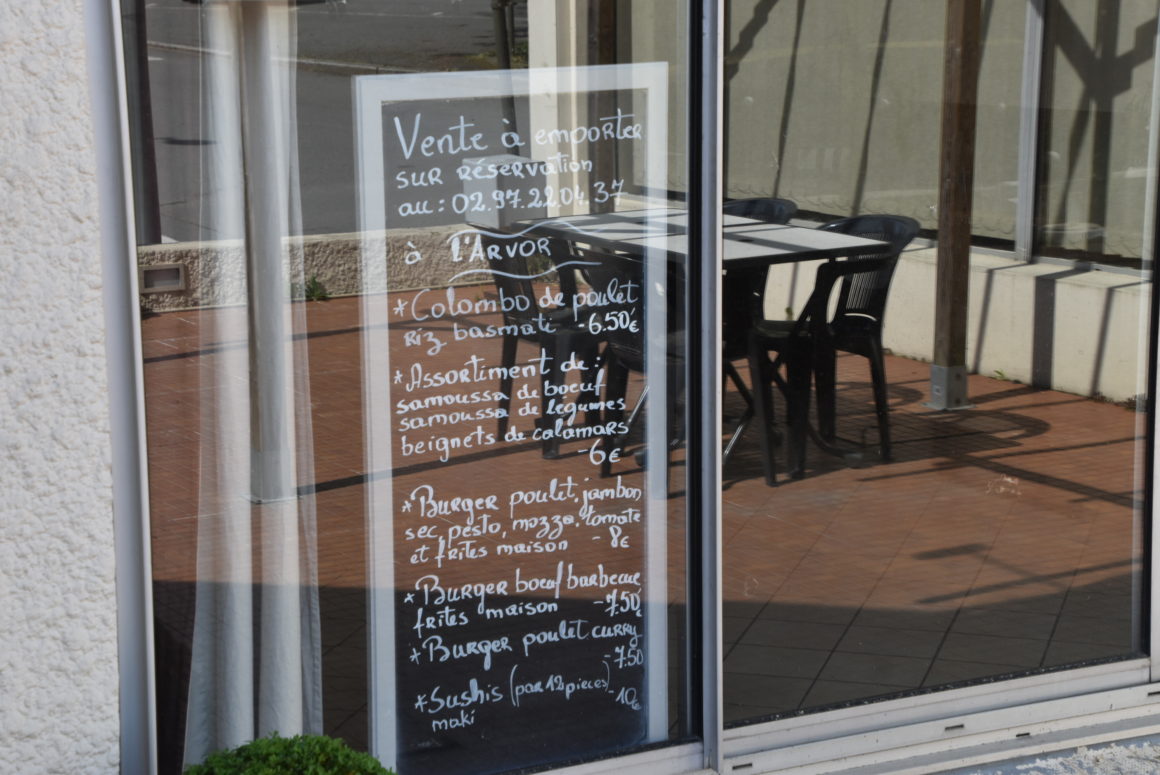 Vente à emporter
sur réservation
au : 02.97.22.04.37
à l'Arvor
*Colombo de poulet
Riz basmati - 6.50€
*Assortiment de :
samoussa de boeuf
samoussa de légumes
beignets de calamars
- 6€
*Burger poulet, jambon
sec, pesto, mozza, tomate
et frites maison - 8€
*Burger boeuf barbecue
frites maison - 7.50€
*Burger poulet curry
- 7.50
*Sushis (par 12 pieces) - 10€
maki